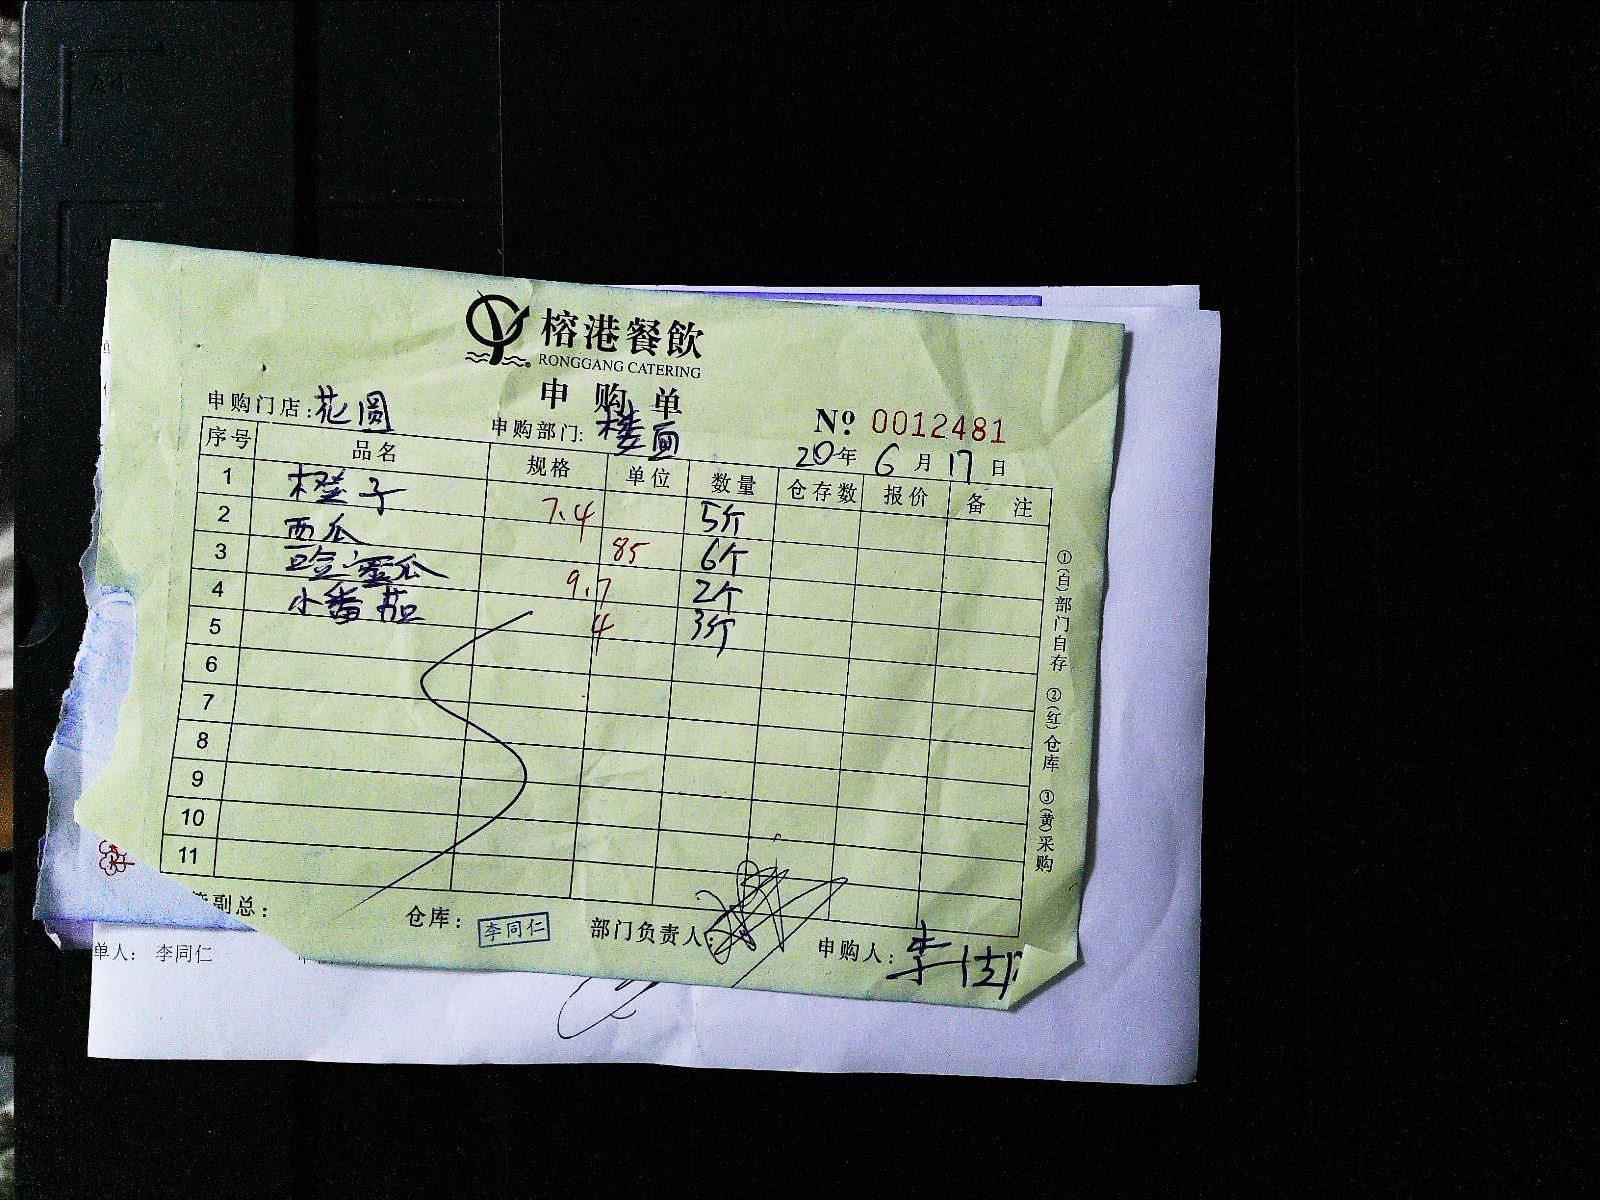 榕港餐飲
RONGGANG CATERING
申购单
申购门店: 花圆
申购部门: 楼面
№ 0012481
20年 6月 17日
序号 品名 规格 单位 数量 仓存数 报价 备注
1 橙子 7.4 5斤
2 西瓜 85 6个
3 哈蜜瓜 9.7 2个
4 小番茄 4 3斤
5
6
7
8
9
10
11
①(白)部门自存 ②(红)仓库 ③(黄)采购
副总: 仓库: 李同仁 部门负责人: 申购人: 李
单人: 李同仁